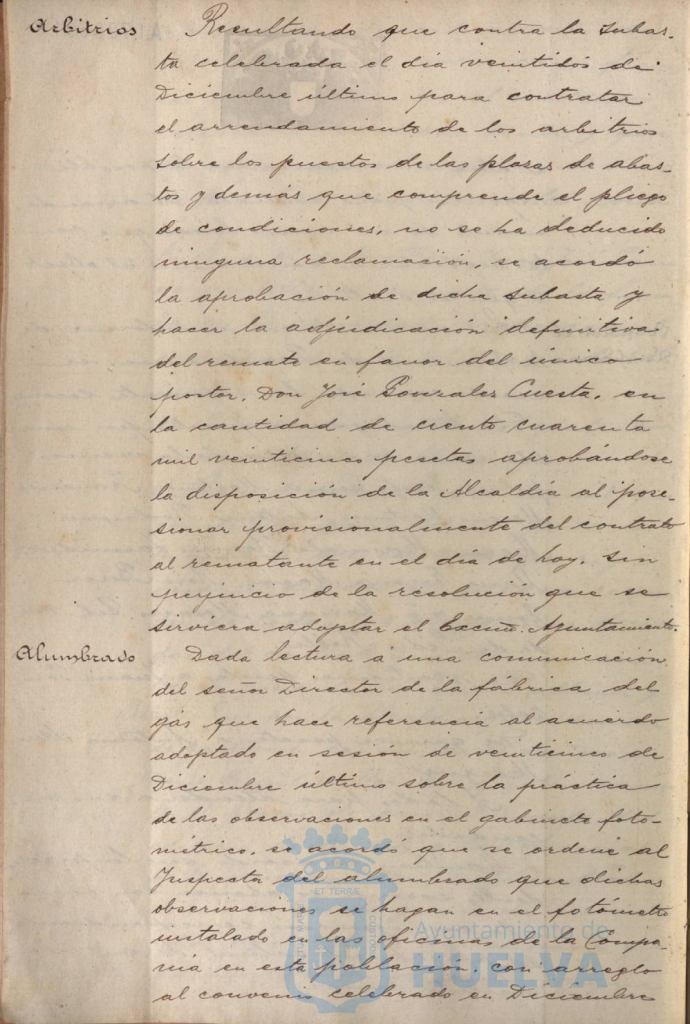 Arbitrios
Resultando que contra la subas-
ta celebrada el día veintidós de
Diciembre último para contratar
el arrendamiento de los arbitrios
sobre los puestos de las plazas de abas-
tos y demás que comprende el pliego
de condiciones, no se ha deducido
ninguna reclamación, se acordó
la aprobación de dicha subasta y
hacer la adjudicación definitiva
del remate en favor del único
postor, Don José Gonzales Cuesta, en
la cantidad de ciento cuarenta
mil veinticinco pesetas aprobándose
la disposición de la Alcaldía al pose-
sionar provisionalmente del contrato
al rematante en el día de hoy, sin
perjuicio de la resolución que se
sirviera adoptar el Excmo. Ayuntamiento.
Alumbrado
Dada lectura á una comunicación
del señor Director de la fábrica del
gas que hace referencia al acuerdo
adoptado en sesión de veinticinco de
Diciembre último sobre la práctica
de las observaciones en el gabinete foto-
métrico, se acordó que se ordene al
Inspector del alumbrado que dichas
observaciones se hagan en el fotómetro
instalado en las oficinas de la Compa-
ñía en esta población, con arreglo
al convenio celebrado en Diciembre
ET TERRÆ
Ayuntamiento de
HUELVA